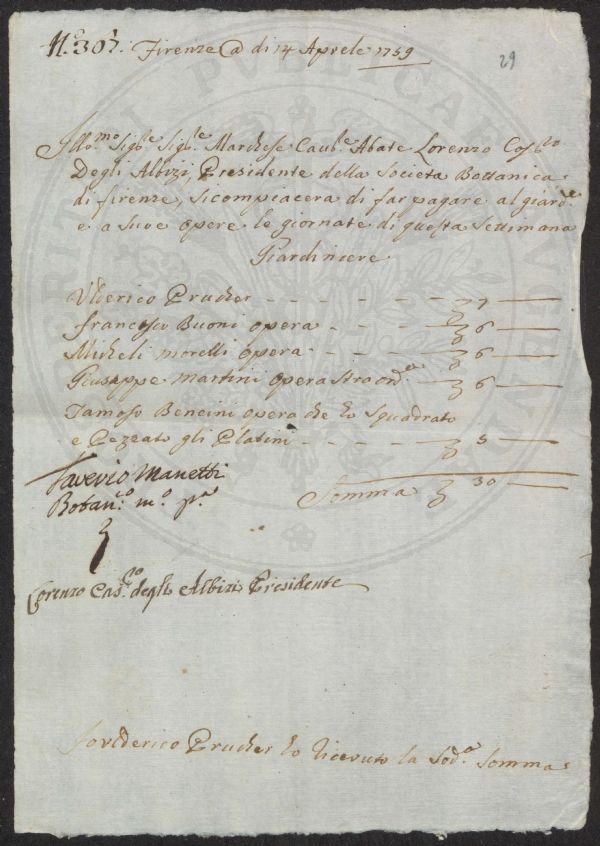 N.° 307. Firenze @ di 14 Aprele 1759
29
Illo.mo Sig.re Sig.re Marchese Cau.re Abate Lorenzo Cas.to
Degli Albizi, Presidente della Societa Bottanica
di firenze, si compiacera di far pagare al giard.e
e a sue opere le giornate di questa Settimana
Giardiniere
Ulderico Prucher - - - - - - 7
francesco Buoni opera - - - - - 6
Micheli morelli opera - - - - - 6
Giuseppe Martini opera straord.a - 6
Tamoso Bencini opera che ho Squadrato
e Pezzato gli Platini - - - - - 5
Somma 30
Saverio Manetti
Botan.co m.o p.a
Lorenzo Cas.to degli Albizi Presidente
Io Ulderico Prucher ho riceuto la Sod.a Somma